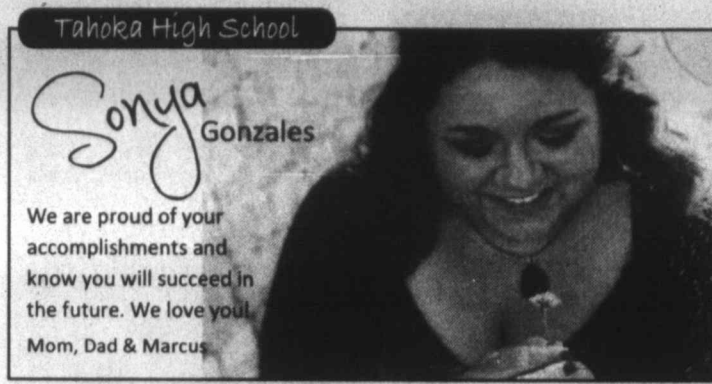 Tahoka High School
Sonya
Gonzales
We are proud of your
accomplishments and
know you will succeed in
the future. We love you!
Mom, Dad & Marcus